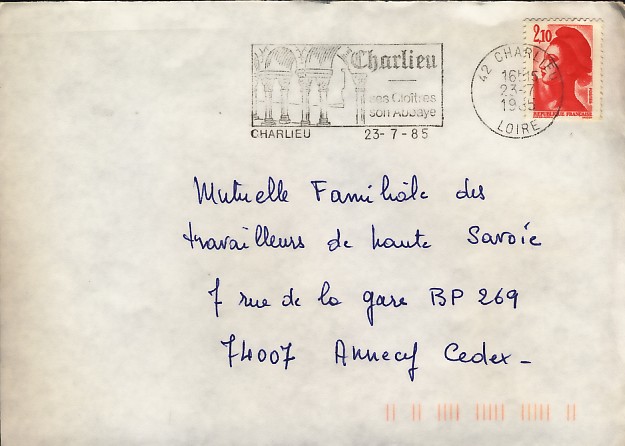 Charlieu
ses Cloîtres
son Abbaye
CHARLIEU 23-7-85
42 CHARLIEU
16H15
23-7
1985
LOIRE
2,10
REPUBLIQUE FRANCAISE
Mutuelle Familiale des
travailleurs de haute Savoie
7 rue de la gare BP 269
74007 Annecy Cedex_